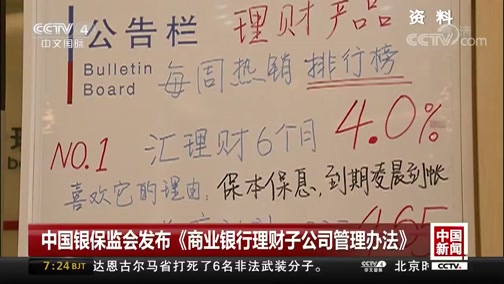 CCTV 4
中文国际
资 料
CCTV.com
公告栏
理财产品
Bulletin
Board
每周热销排行榜
NO.1
汇理财6个月
4.0%
喜欢它的理由:保本保息,到期凌晨到帐
4.65
中国银保监会发布《商业银行理财子公司管理办法》
中国
新闻
7:24 BJT
达恩古尔马省打死了6名非法武装分子。
CCTV 4
中文国际
北京时